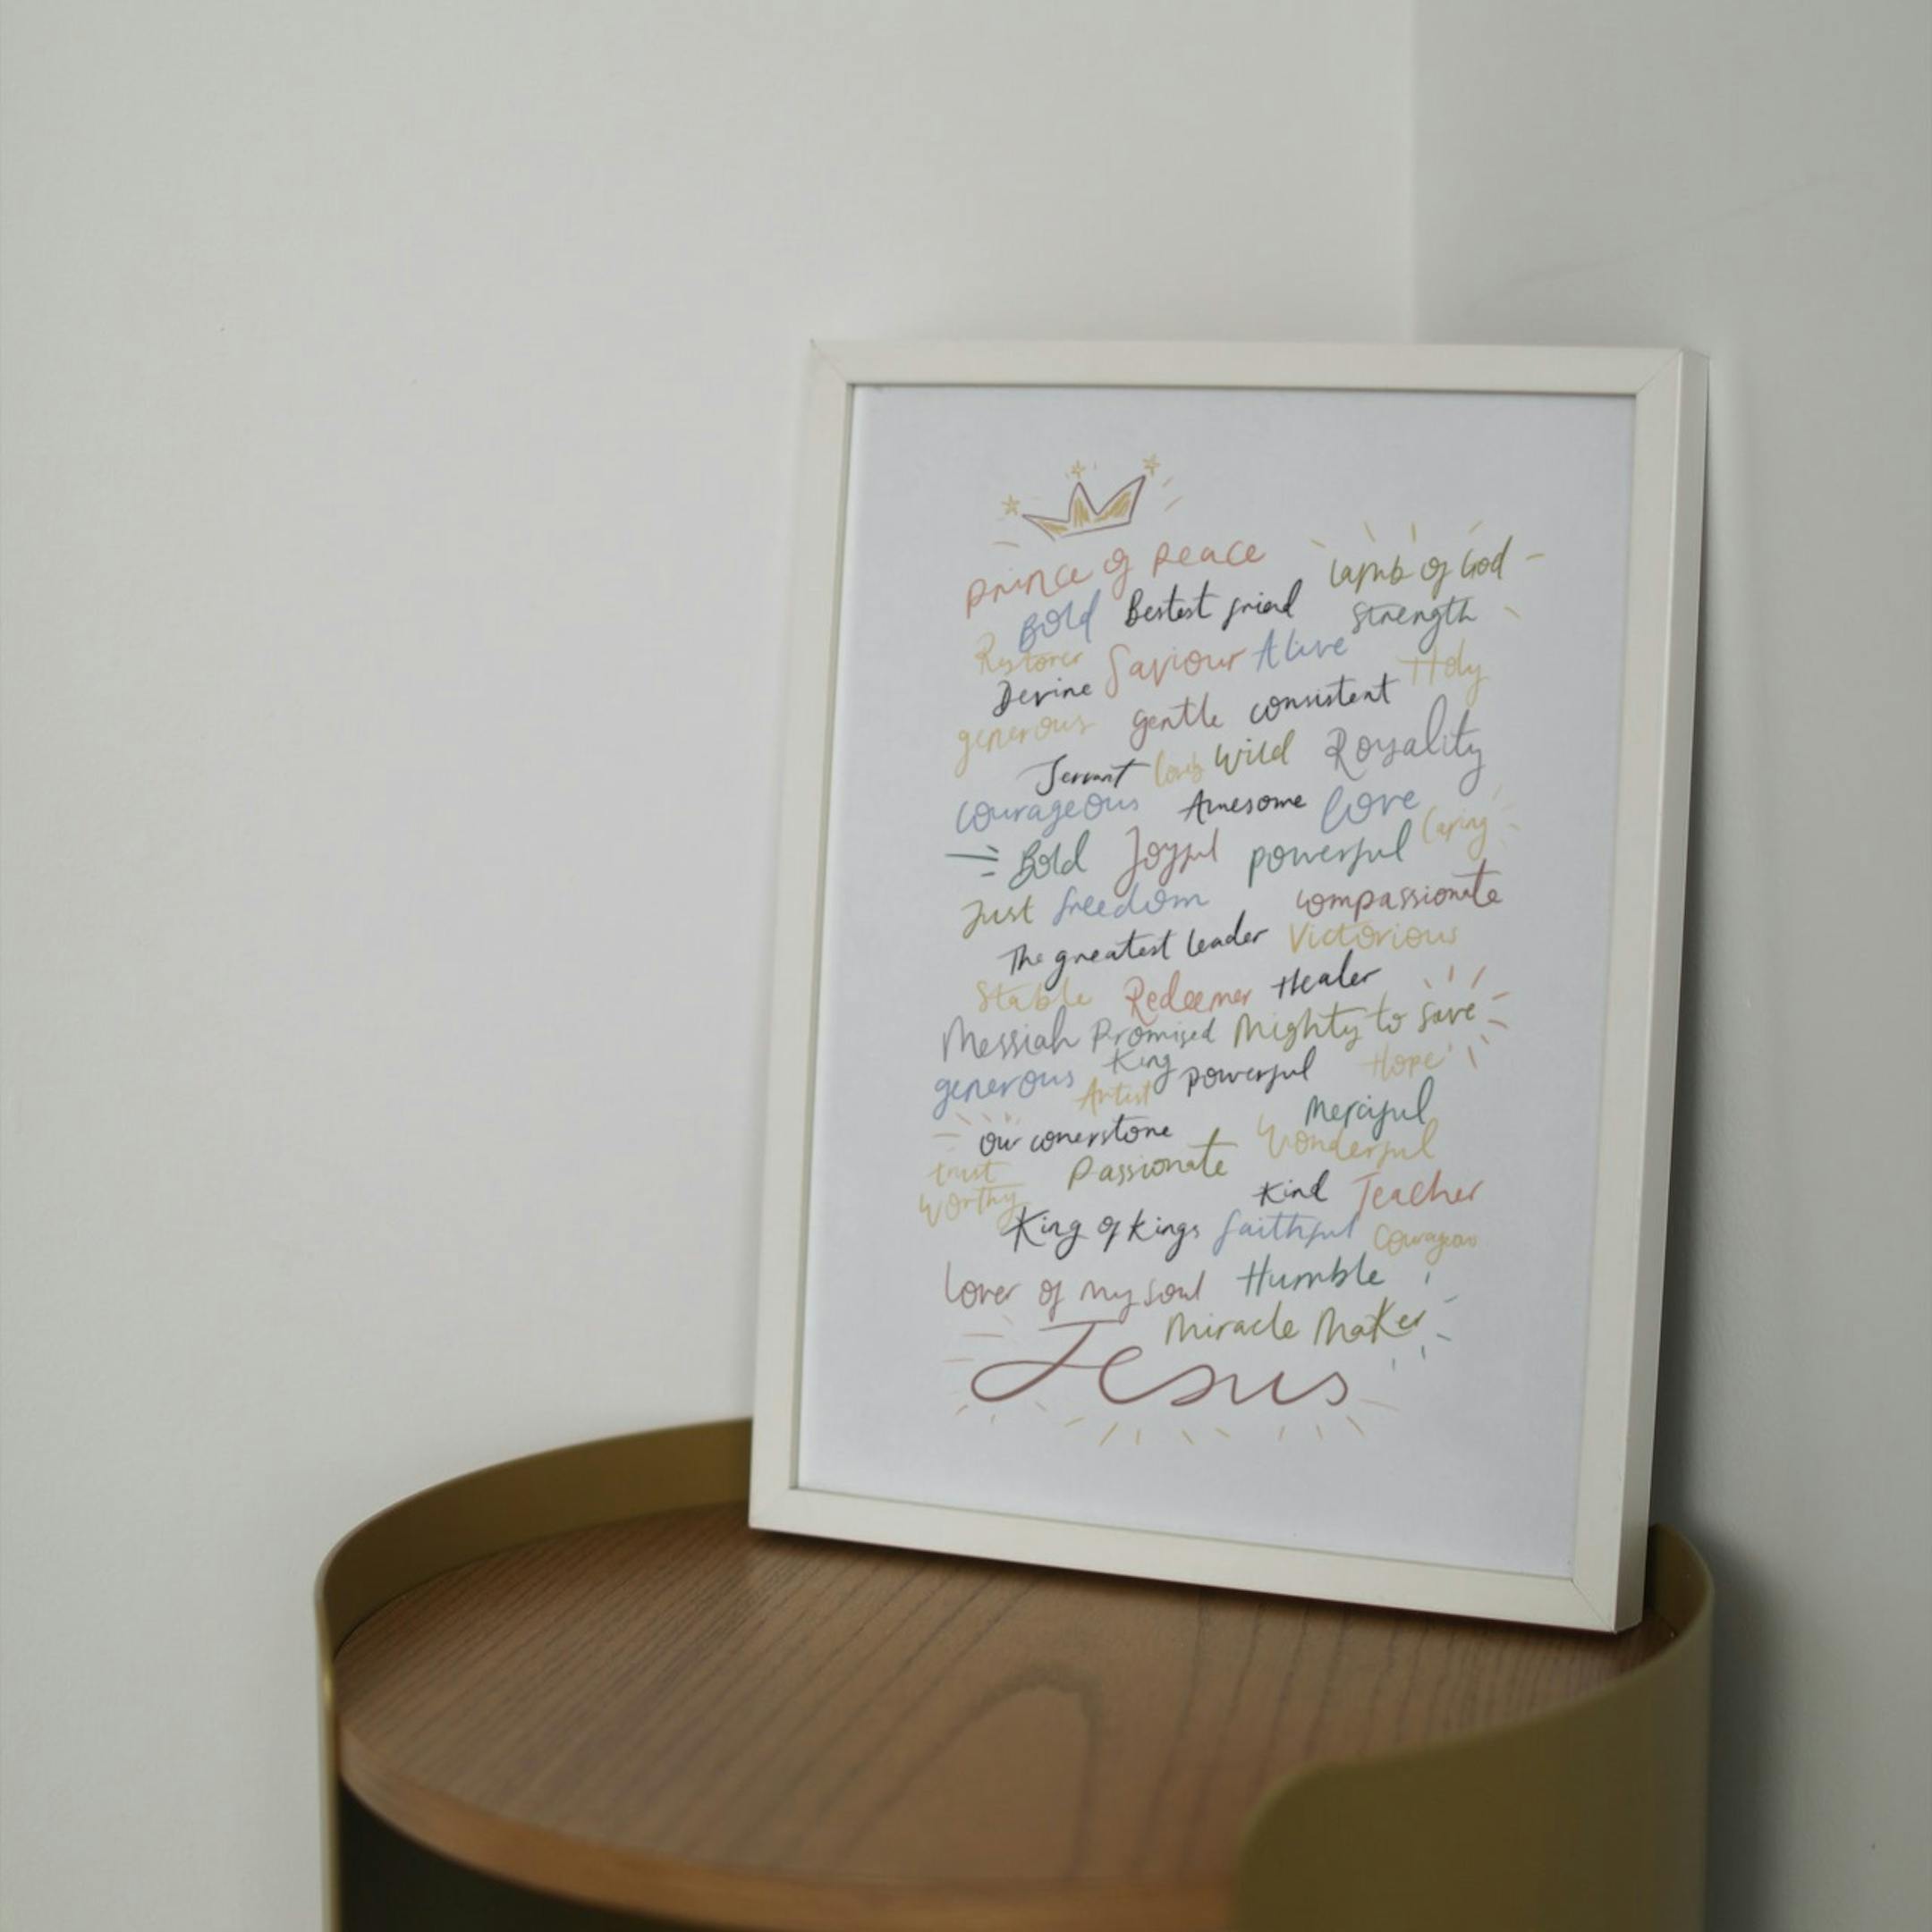 Prince of Peace Lamb of God
Bold Bestest friend Strength
Restorer Saviour Alive Holy
Devine gentle consistent
generous Servant Wild Royality
courageous Awesome love Caring
Bold Joyful powerful
Just freedom compassionate
The greatest leader Victorious
Stable Redeemer Healer
Messiah Promised King Mighty to save
generous Artist powerful Hope
our conerstone Merciful
trust worthy Passionate Wonderful
Kind Teacher
King of kings faithful
Lover of my soul Humble
Miracle Maker
Jesus